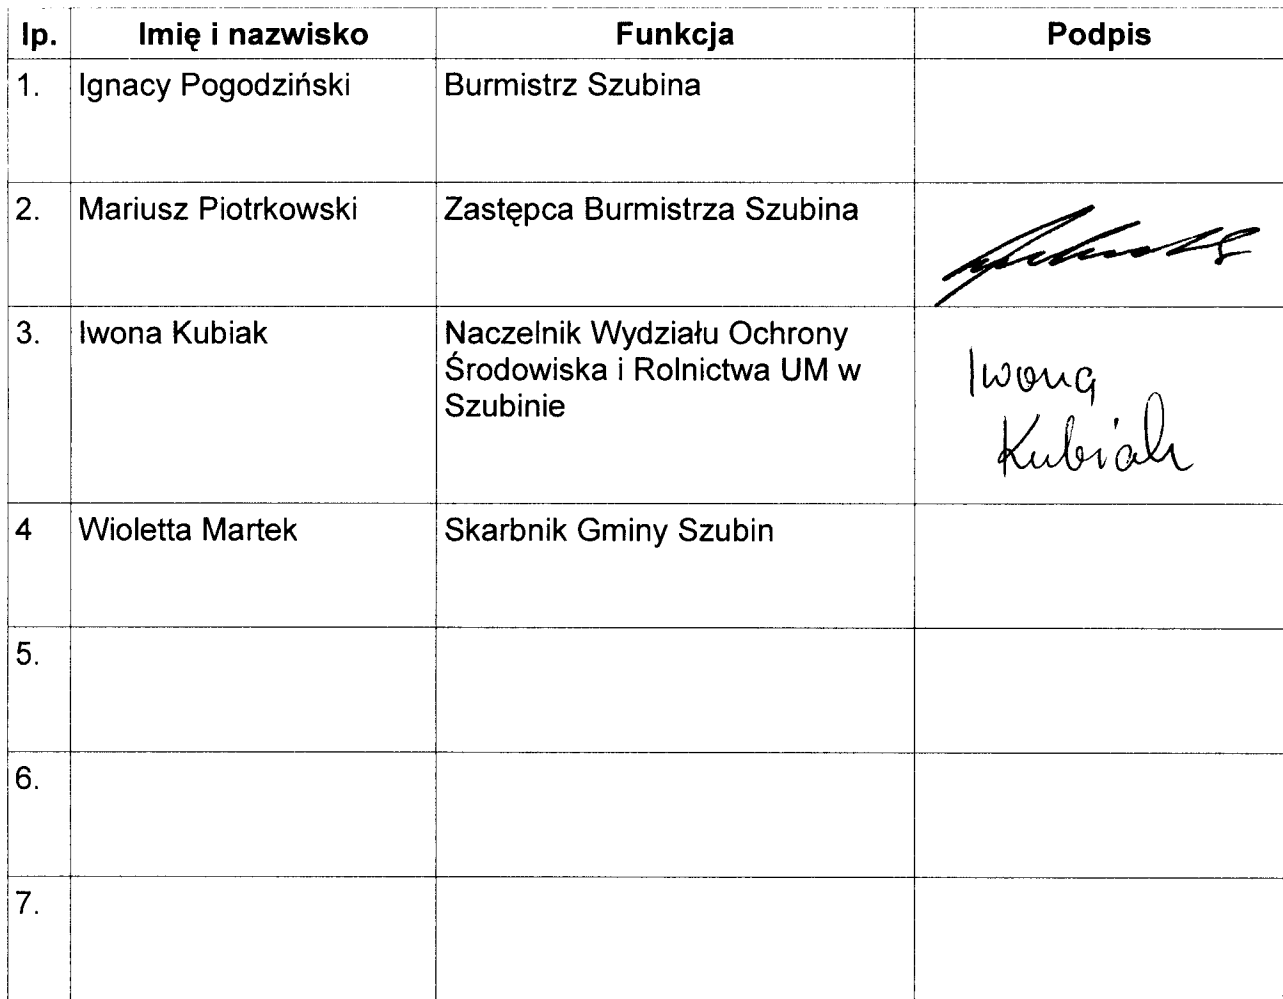 lp. Imię i nazwisko Funkcja Podpis
1. Ignacy Pogodziński Burmistrz Szubina
2. Mariusz Piotrkowski Zastępca Burmistrza Szubina
3. Iwona Kubiak Naczelnik Wydziału Ochrony
Środowiska i Rolnictwa UM w
Szubinie
Iwona
Kubiak
4 Wioletta Martek Skarbnik Gminy Szubin
5.
6.
7.